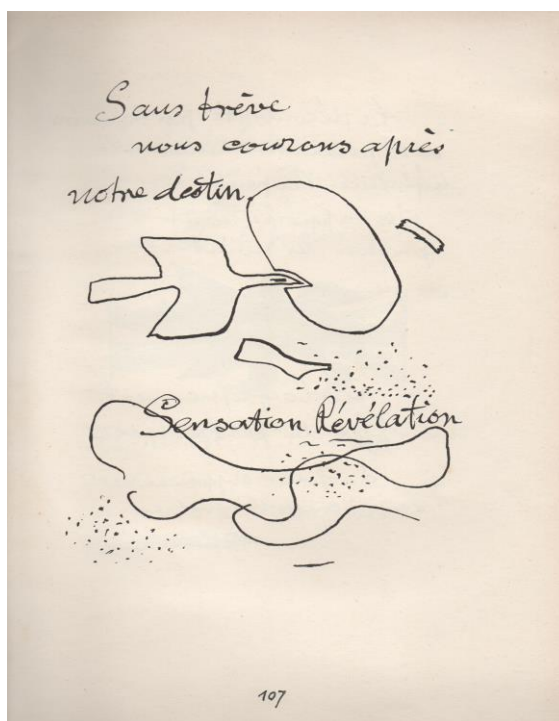 Sans trêve
nous courons après
notre destin.
Sensation. Révélation
107